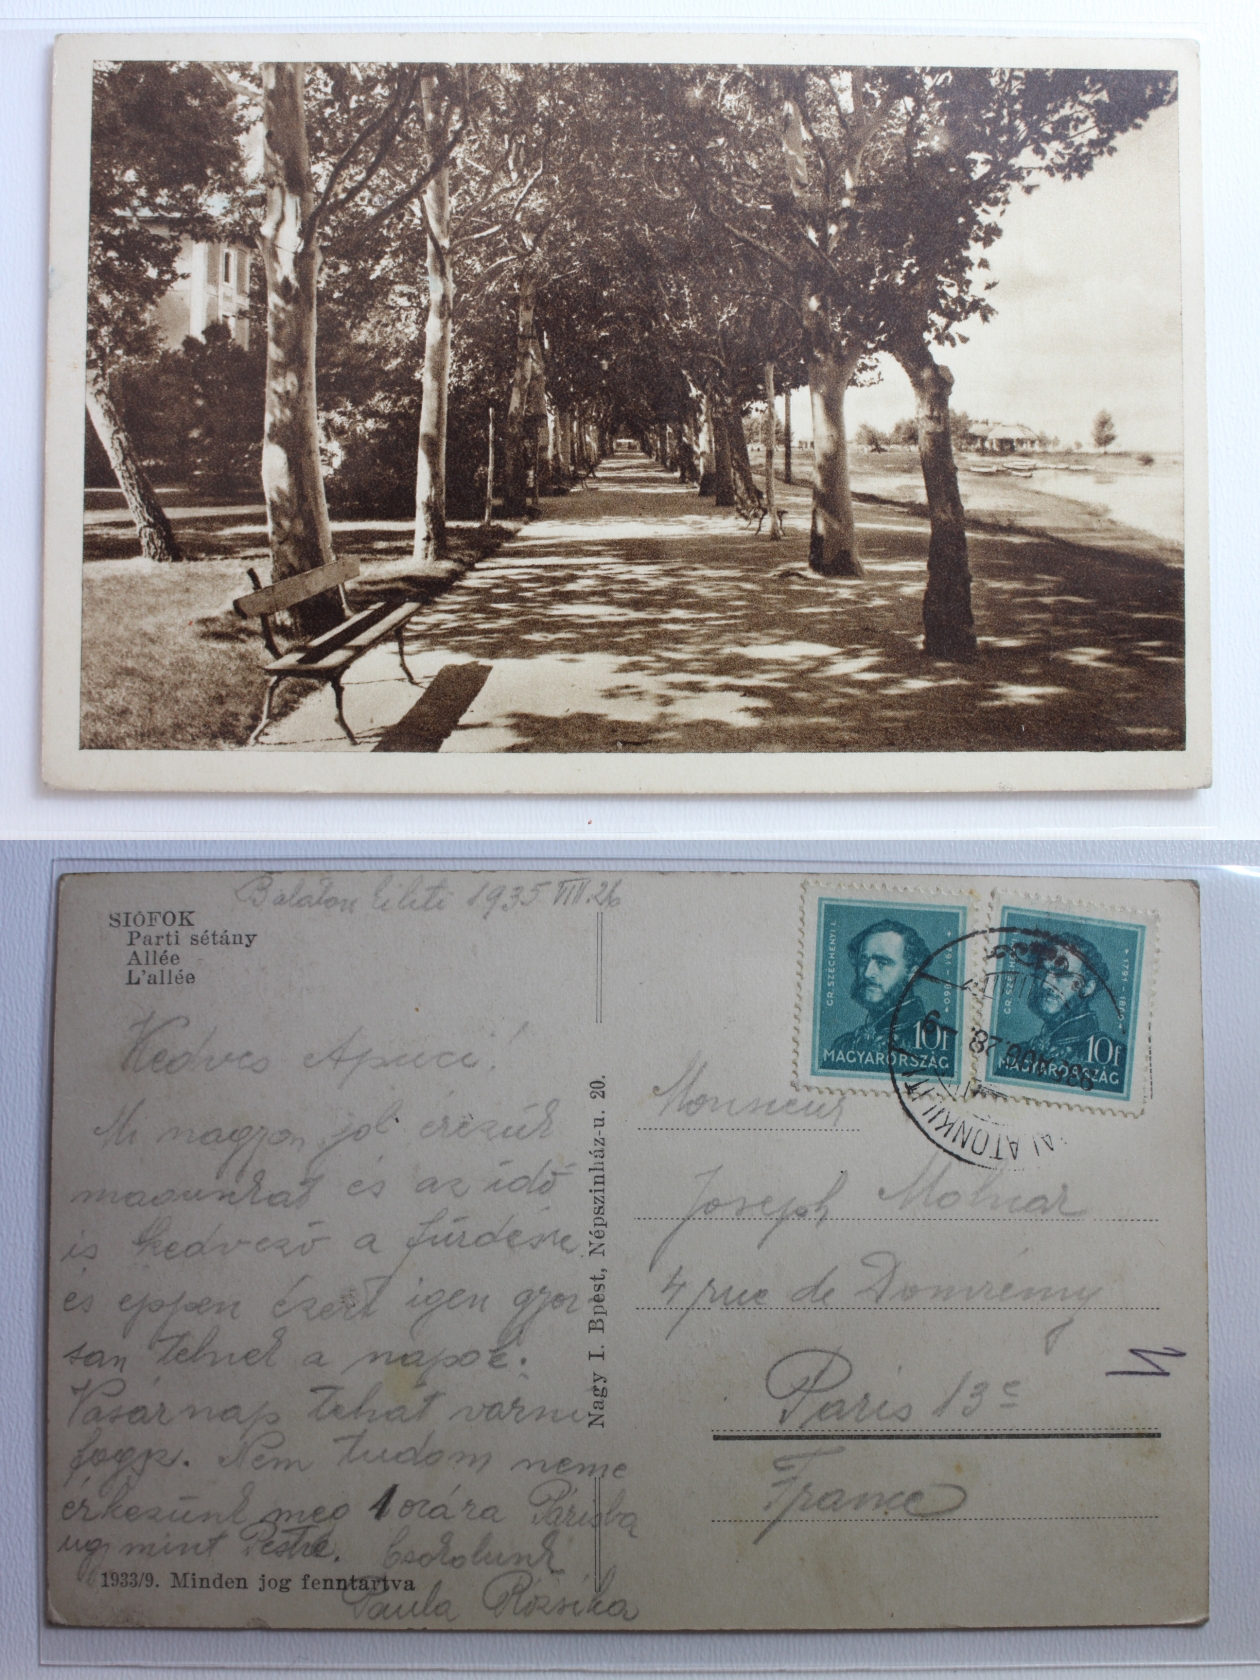 Balaton kiliti 1935 VIII.26
SIÓFOK
Parti sétány
Allée
L'allée
Kedves Apuci!
Mi nagyon jól érezük
magunkat és az idő
is kedvező a fürdésre
és eppen ézert igen gyor
san telnek a napok.
Vasárnap tehát várni
fogja. Nem tudom neme
érkezünk meg 1 orára Párisba
ugy mint Pestre. Csokolunk
Paula Rózsika
1933/9. Minden jog fenntartva
Nagy I. Bpest, Népszinház-u. 20.
GR. SZÉCHENYI I.
10f
MAGYARORSZÁG
1791-1860
10f
MAGYARORSZÁG
28. 19
Monsieur
Joseph Molnar
4 rue de Domrémy
Paris 13e
France